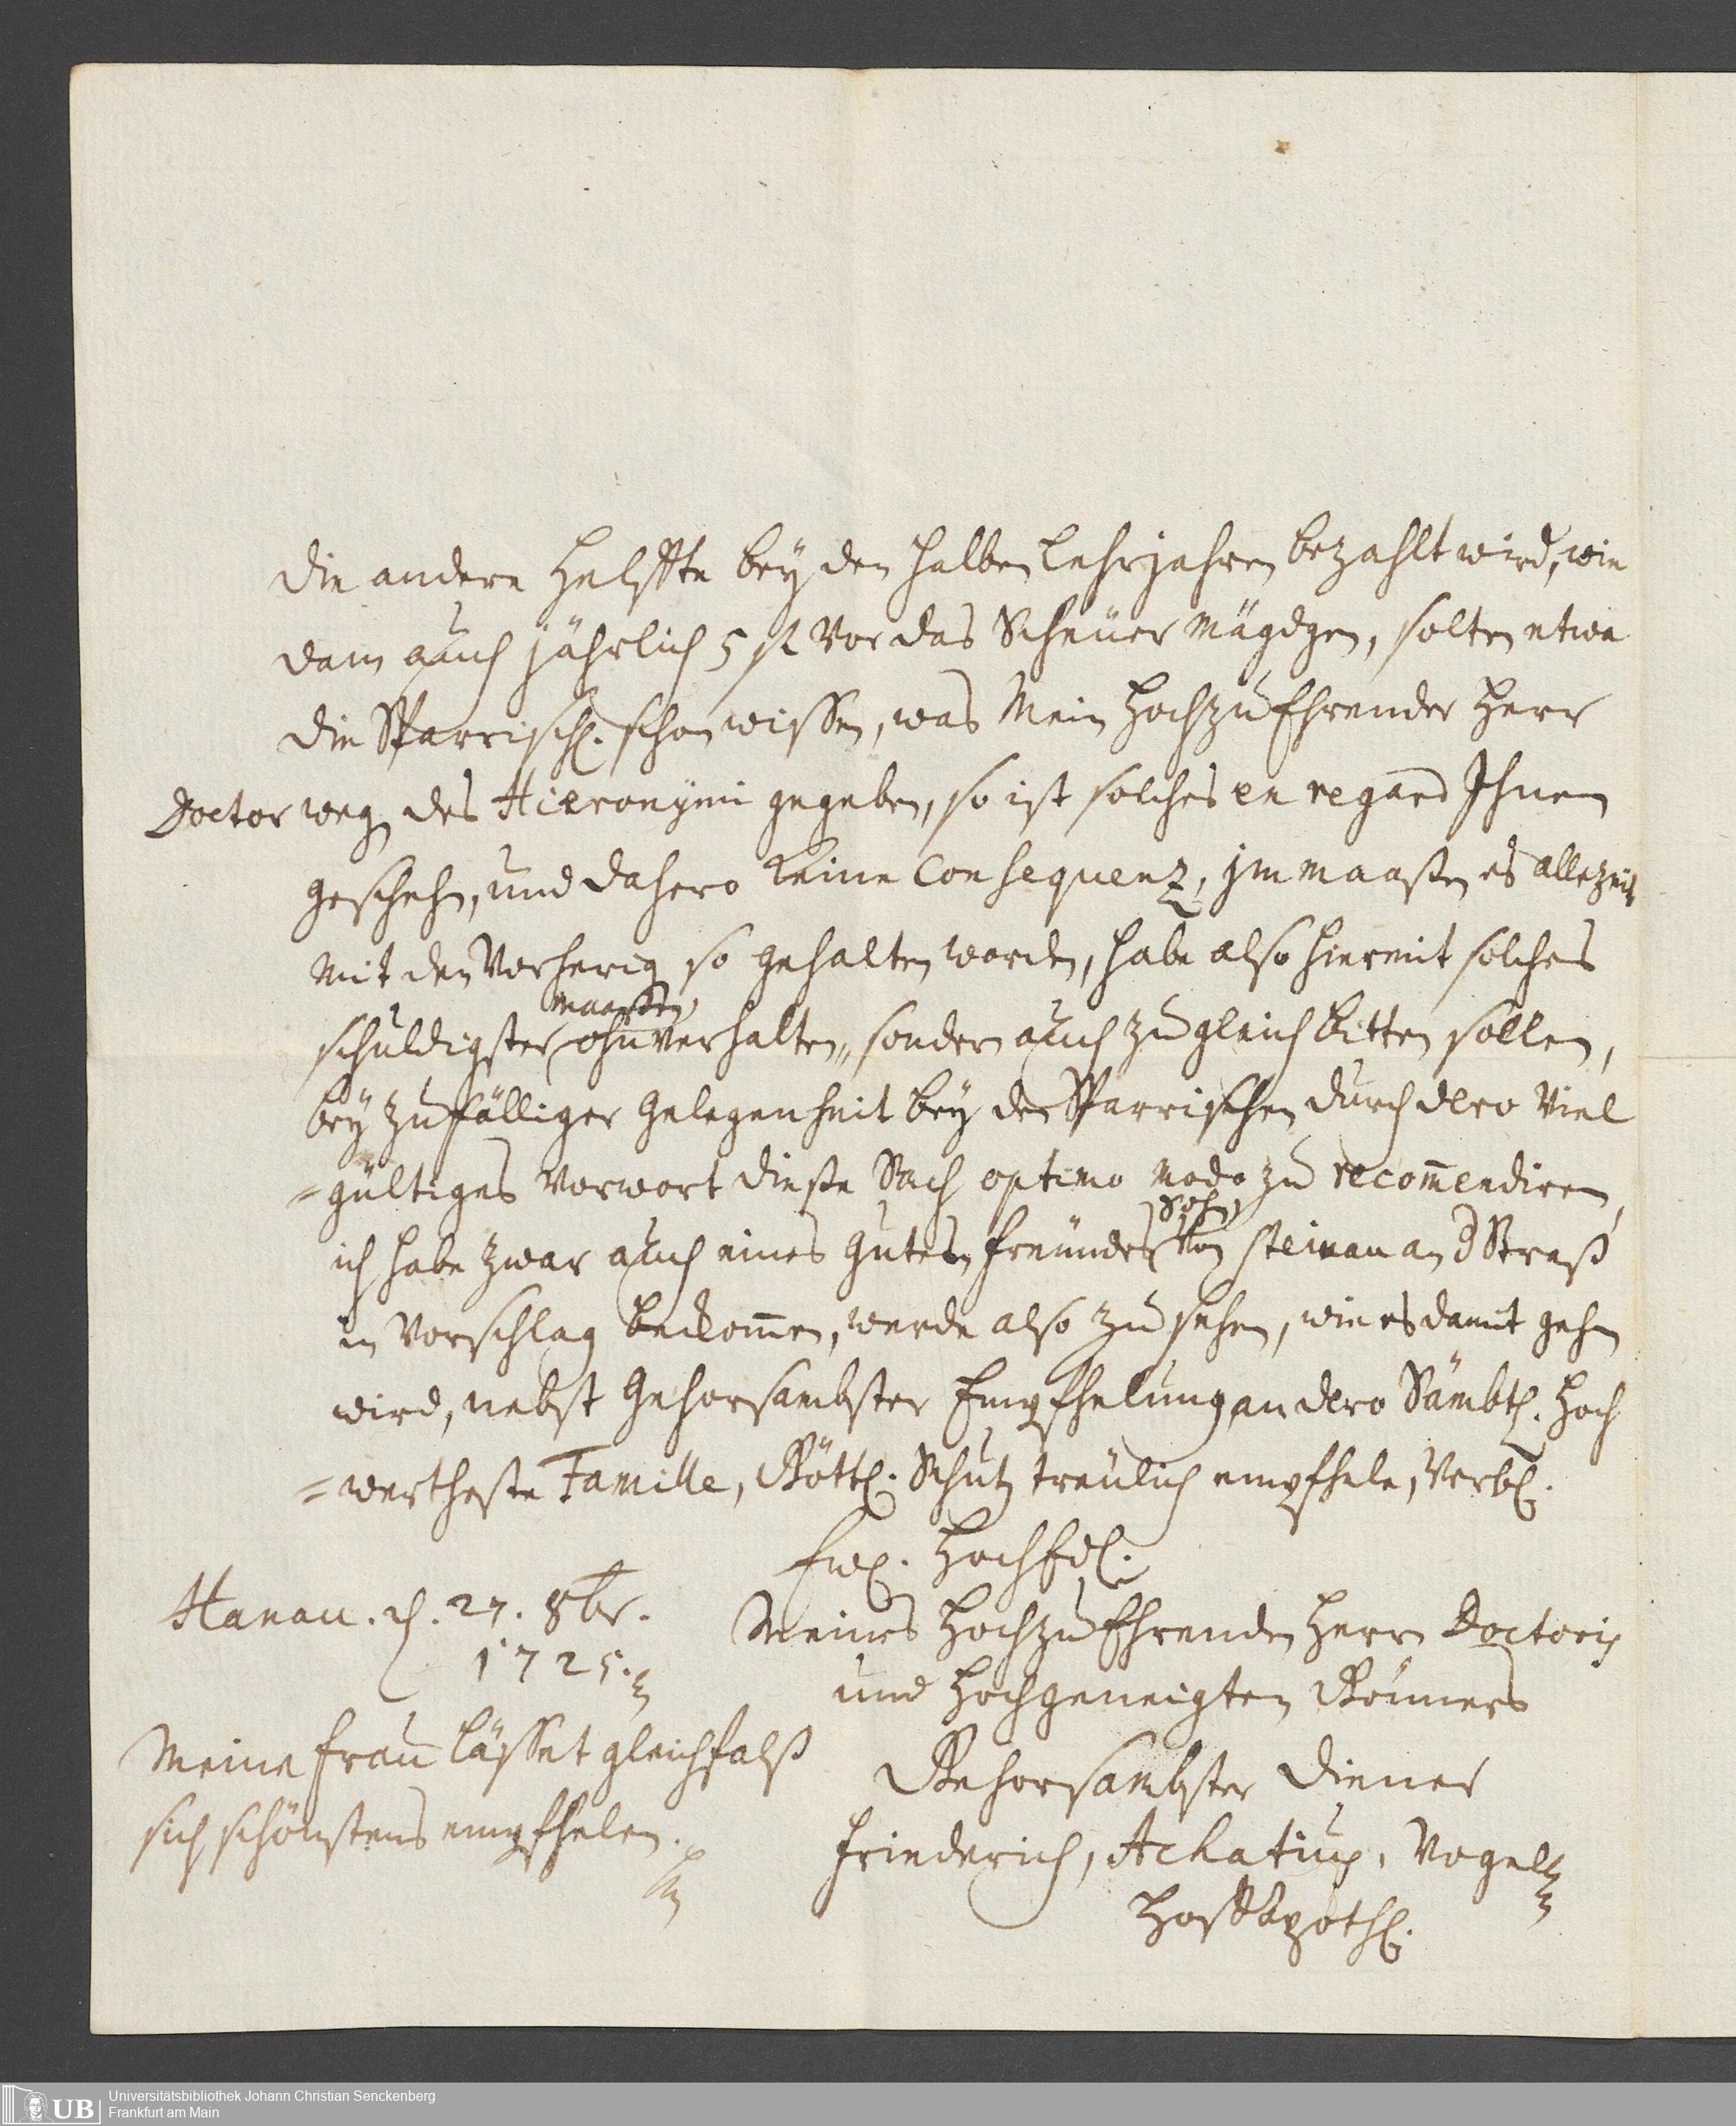 die andere Helffte bey den halben Lehrjahren bezahlt wird, wie
dann auch jährlich 5 fl vor das Scheuer Mägdgen, solten etwa
die Pfarrisch. schon wissen, was Mein Hochzu Ehrender Herr
Doctor weg. des Hieronymi gegeben, so ist solches en regard Ihnen
geschehn, und dahero keine Consequenz, jm maaßen es allezeit
mit den Vorherig. so gehalten worden, habe also hiermit solches
maaßen
schuldigster ohnverhalten, sondern auch zu gleich bitten sollen,
bey zufälliger Gelegenheit bey den Pfarrischen durch dero Viel
=gültiges Vorwort dieße Sach optimo modo zu recom̄endiren,
Sohn
ich habe zwar auch eines guten Freundes Von Steinau an d Straß
in Vorschlag bekom̄en, werde also zu sehen, wie es damit gehn
wird, nebst Gehorsambster Empfhelung an dero Sämbtl. Hoch
=wertheste Famille, Göttl. Schutz treulich empfhele, Verbl.
Ew. HochEdl.
Hanau. d. 27. 8br.
1725.
Meines Hochzu Ehrenden Herrn Doctoris
und Hochgeneigten Gönners
Meine Frau lässet gleichfalß
sich schönstens empfhelen.
Gehorsambster Diener
Friederich, Achatius, Vogel
Hoff Apoth.
UB Universitätsbibliothek Johann Christian Senckenberg
Frankfurt am Main